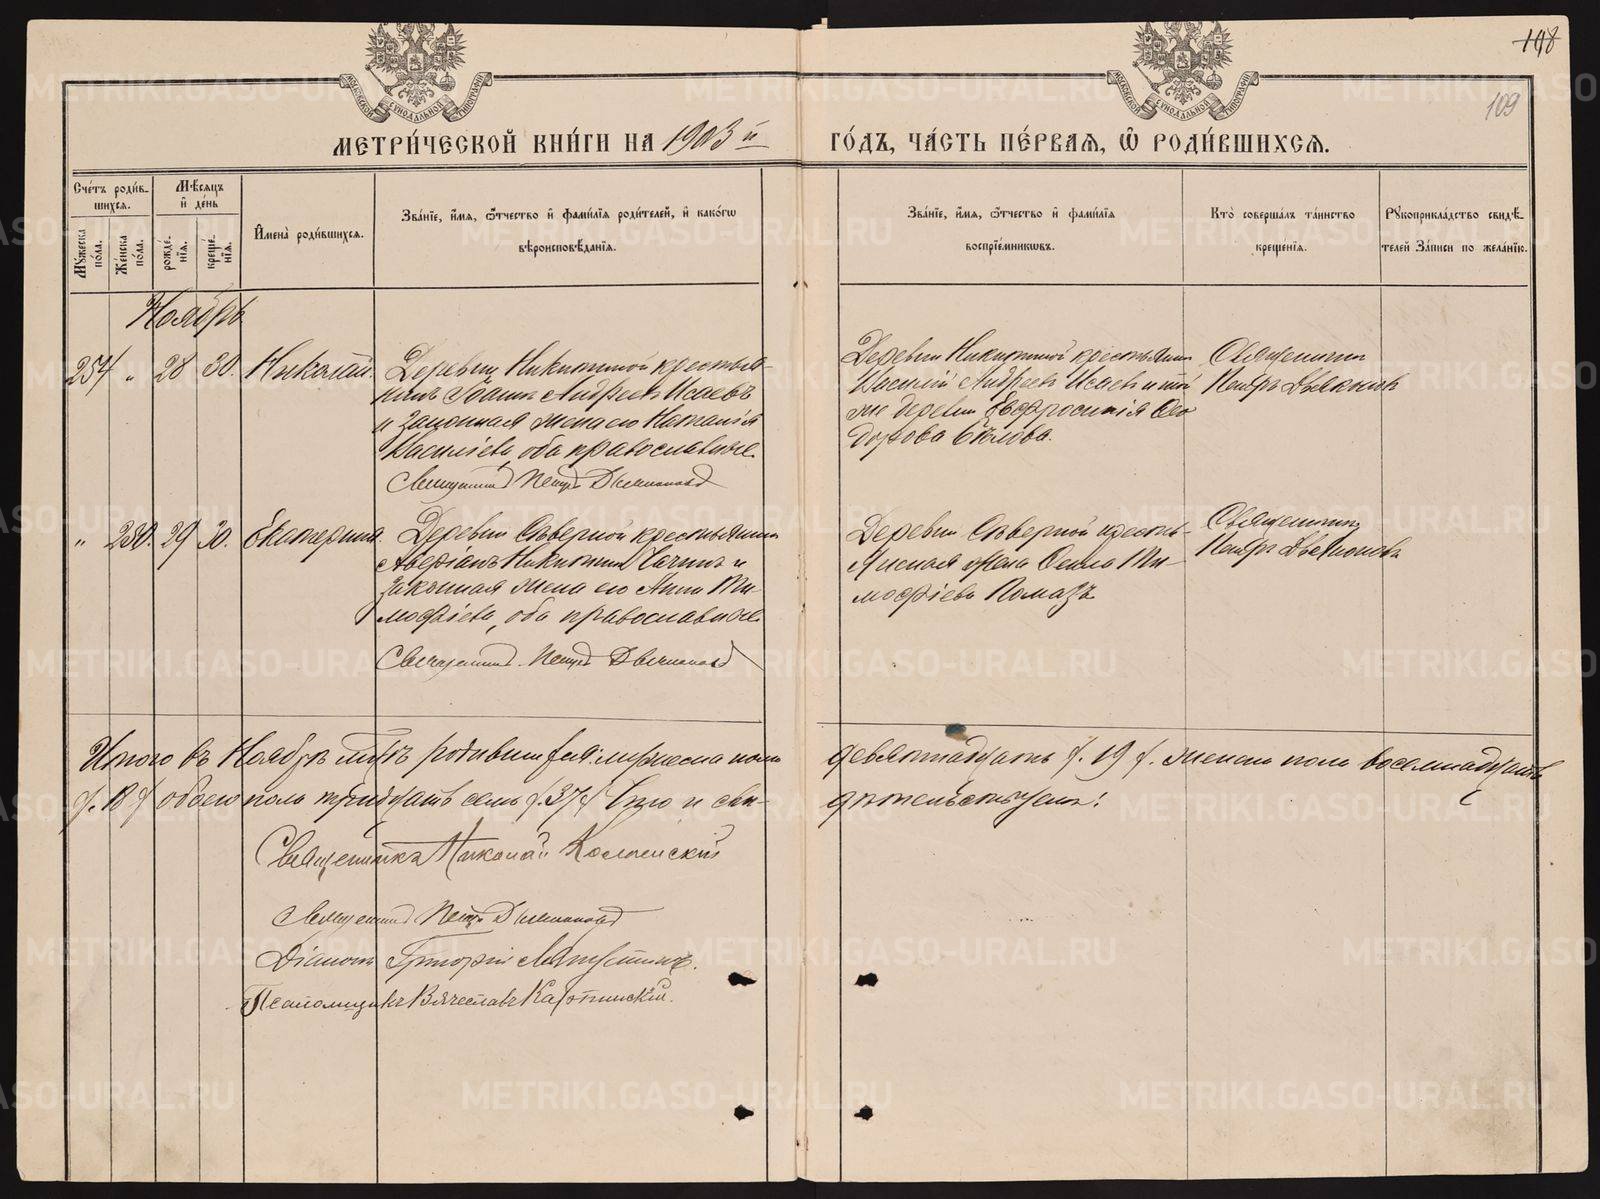 118
109
МЕТРИ́ЧЕСКОЙ КНИ́ГИ НА 1903 й ГО́ДЪ, ЧА́СТЬ ПЕ́РВАѦ, Ѽ РОДИ́ВШИХСѦ.
Сче́тъ роди́в-
шихсѧ.
Мꙋжеска по́ла.
Же́нска по́ла.
Мѣсѧцъ и҆ де́нь
рожде́нїѧ.
креще́нїѧ.
И҆мена̀ роди́вшихсѧ.
Зва́нїе, и҆́мѧ, ѻ҆́тчество и҆ фамилїѧ роди́телей, и҆ како́гѡ
вѣроисповѣданїѧ.
Зва́нїе, и҆́мѧ, ѻ҆́тчество и҆ фамилїѧ
воспрїе́мникѡвъ.
Кто̀ соверша́лъ та́инство
креще́нїѧ.
Рꙋкоприкла́дство свидѣ́-
телей За́писи по жела́нїю.
Ноябрь
254 " 28 30. Николай.
Деревни Никитиной крестья-
нинъ Іоаннъ Андреевъ Исаевъ
и законная жена его Наталія
Василіева, оба православные.
Священникъ Петръ
Деревни Никитиной крестьянинъ
Василій Андреевъ Исаевъ и той
же деревни Евфросинія Ѳео
дорова Бѣлова.
Священникъ
Петръ
" 230. 29 30. Екатерина.
Деревни Сѣверной крестьянинъ
Аверіанъ Никитинъ и
законная жена его Анна Ти-
моѳіева, оба православные.
Священникъ Петръ
Деревни Сѣверной кресть-
янская Ти-
моѳіева
Священникъ
Петръ
Итого въ Ноябрѣ мѣсяцѣ родившихся: мужеска пола девятнадцать /. 19 /. женска пола восемнадцать
/. 18 / обоего пола тридцать семь /. 37 / Что и сви- дѣтельствуемъ:
Священникъ Николай
Священникъ Петръ
Діаконъ Григорій
Псаломщикъ Вячеславъ
METRIKI.GASO-URAL.RU